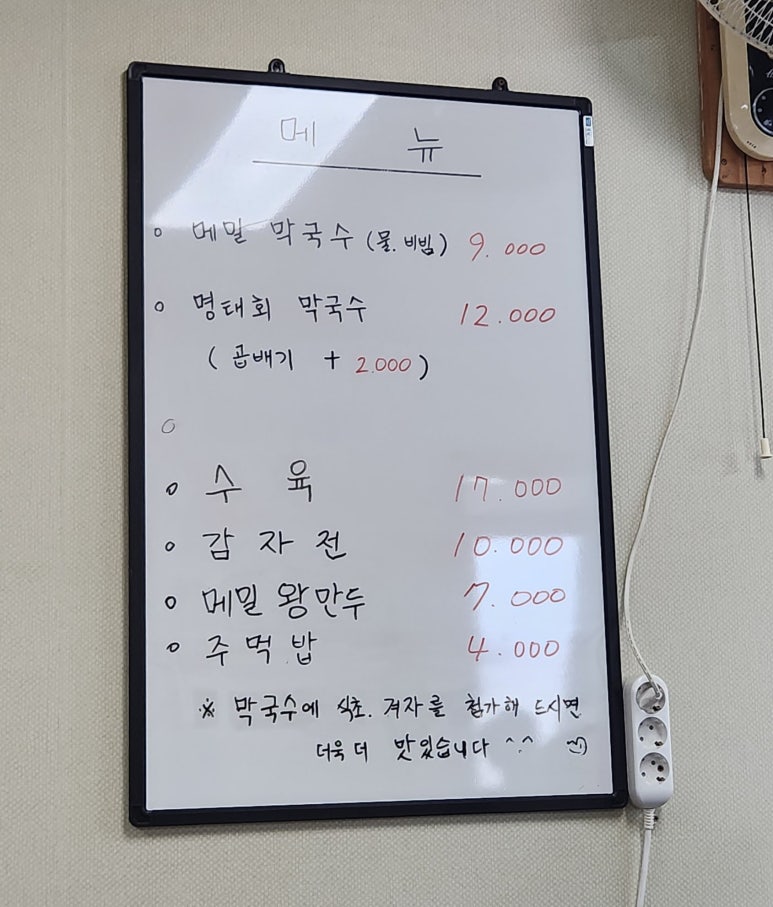 메 뉴
o 메밀 막국수 (물. 비빔) 9.000
o 명태회 막국수 12.000
( 곱배기 + 2.000 )
o
o 수 육 17.000
o 감 자 전 10.000
o 메밀 왕만두 7.000
o 주 먹 밥 4.000
※ 막국수에 식초. 겨자를 첨가해 드시면
더욱 더 맛있습니다 ^.^